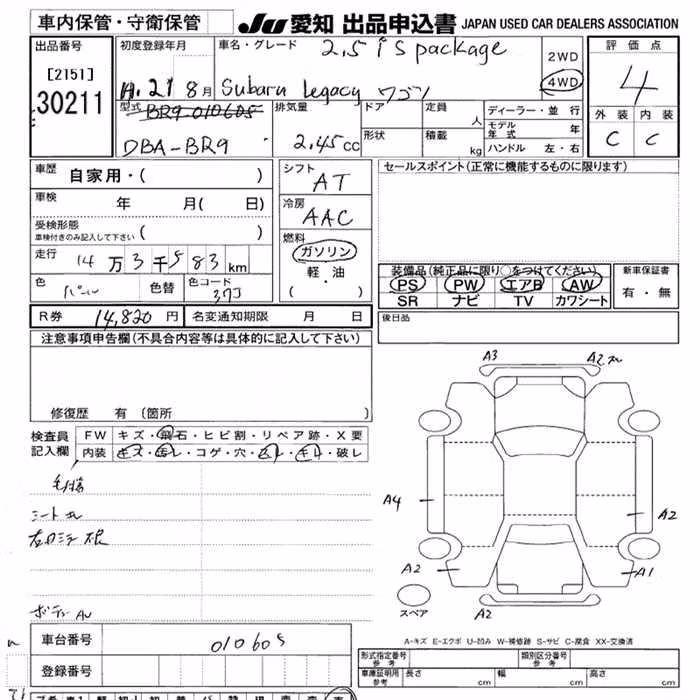 車内保管・守衛保管
JU 愛知 出品申込書 JAPAN USED CAR DEALERS ASSOCIATION
出品番号
[2151]
30211
初度登録年月
H.21 8月
車名・グレード
2.5 i S package
Subaru legacy ワゴン
2WD
4WD
評価点
4
外装 内装
C C
型式
BR9-010605
DBA-BR9
排気量
2.45cc
ドア
形状
定員 人
積載 kg
ディーラー・並行
モデル年式 年
ハンドル 左・右
車歴
自家用・( )
車検
年 月( 日)
受検形態
車検付きのみ記入して下さい ( )
走行
14万3千583km
色
パール
色替
色コード
37J
シフト
AT
冷房
AAC
燃料
ガソリン
軽・油
( ・ )
セールスポイント(正常に機能するものに限ります)
装備品(純正品に限り○をつけてください)
PS PW エアB AW
SR ナビ TV カワシート
新車保証書
有・無
R券 14,820円
名変通知期限 月 日
後日品
注意事項申告欄(不具合内容等は具体的に記入して下さい)
修復歴 有(箇所 )
検査員
記入欄
FW キズ・飛石・ヒビ割・リペア跡・X要
内装 キズ・汚レ・コゲ・穴・ムレ・キレ・破レ
シート
ボディ AU
A3
A2
A4
A2
A2
A1
A2
スペア
A-キズ E-エクボ U-凹み W-補修跡 S-サビ C-腐食 XX-交換済
車台番号
010605
登録番号
形式指定番号
参考
類別区分番号
参考
車庫証明用
参考
長さ cm
幅 cm
高さ cm